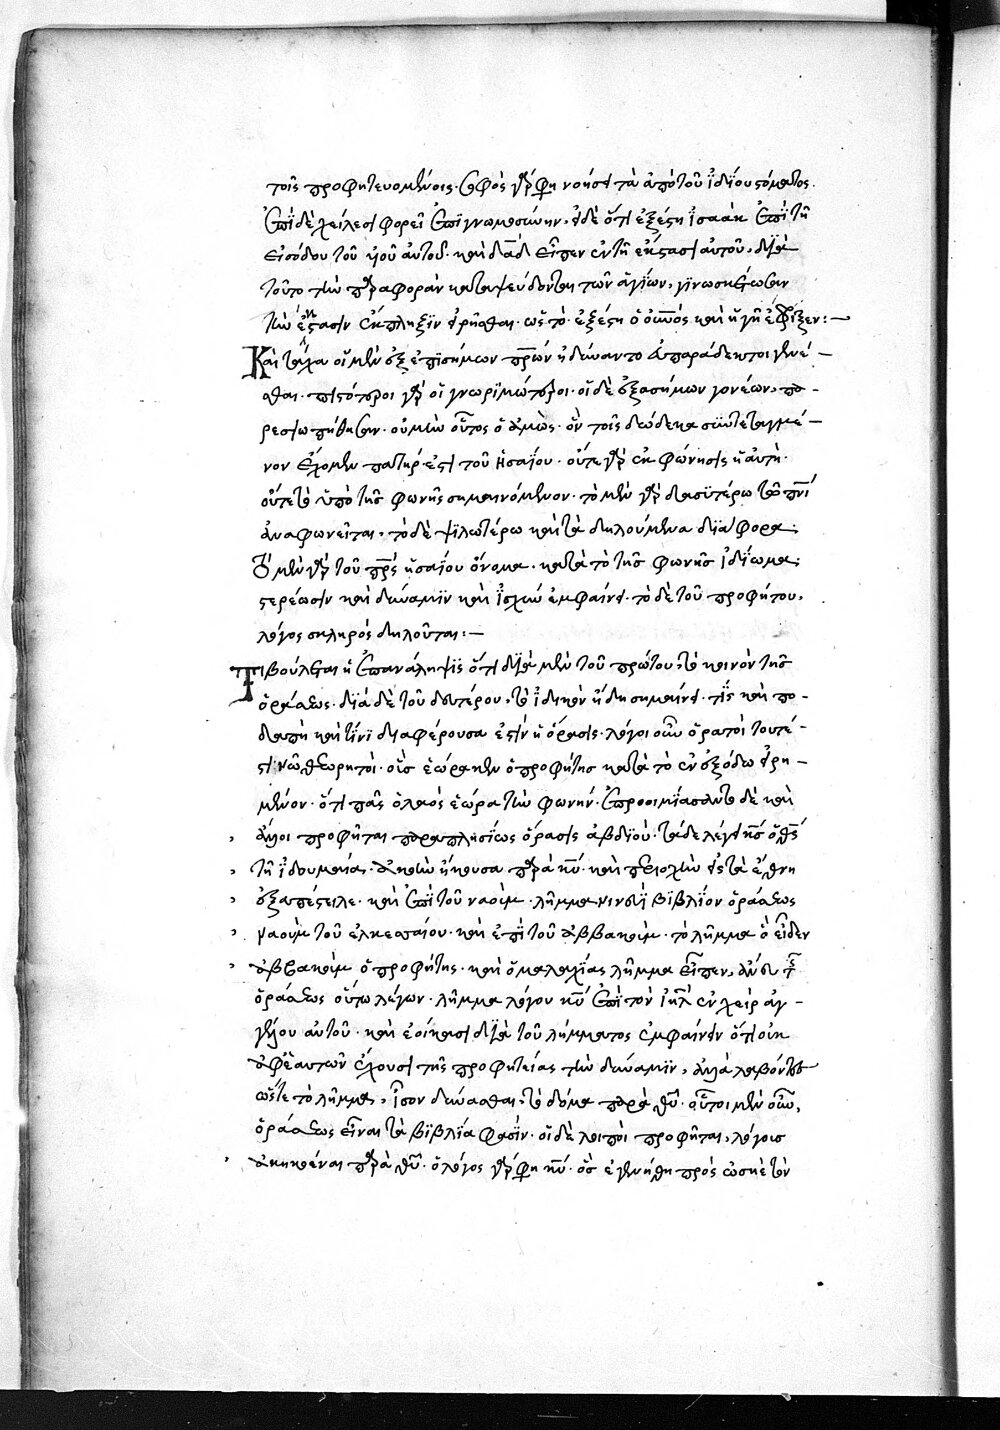 τοῖς προφητευομένοις· σοφὸς γάρ φη νοήσει τὰ ἀπὸ τοῦ ἰδίου στόματος.
ἐπὶ δὲ χείλεσι φορεῖ ἐπιγνωμοσύνην· εἰ δὲ ὅτι ἐξέστη ἰσαὰκ ἐπὶ τῇ
εἰσόδου τοῦ υἱοῦ αὐτοῦ· καὶ δαδ εἶπεν ἐν τῇ ἐκστάσει αὐτοῦ· διὰ
τοῦτο τὴν παραφορὰν καταψεύδονται τῶν ἁγίων, γινωσκέτωσαν
τὴν ἔκστασιν ἔκπληξιν εἰρῆσθαι· ὡς τὸ ἐξέστη ὁ οὐνὸς καὶ ἡ γῆ ἔφριξεν:—
Καὶ τάχα οἱ μὲν ἐξ ἐπισήμων πρῶν ἠδύναντο εὐπαράδεκτοι γενέ-
σθαι· πιστότεροι γὰρ οἱ γνωριμώτεροι· οἱ δὲ ἐξ ἀσήμων γονέων, πα-
ρεσιωπήθησαν· οὐ μὴν οὗτος ὁ ἀμὼς· ὃν τοῖς δώδεκα συντεταγμέ-
νον ἔχομεν πατήρ ἐστι τοῦ ἡσαΐου· οὔτε γὰρ ἐκφώνησις ἡ αὐτὴ·
οὔτε τὸ ὑπὸ τῆς φωνῆς σημαινόμενον· τὸ μὲν γὰρ δασυτέρω τῶ πνι
ἀναφωνεῖται, τὸ δὲ ψιλωτέρω καὶ τὰ δηλούμενα διάφορα·
Τὸ μὲν γὰρ τοῦ πρς ἡσαΐου ὄνομα· κατὰ τὸ τῆς φωνῆς ἰδίωμα·
στερέωσιν καὶ δύναμιν καὶ ἰσχὺν ἐμφαίνει· τὸ δὲ τοῦ προφήτου,
λόγος σκληρὸς δηλοῦται:—
Τί βούλεται ἡ ἐπανάληψις ὅτι διὰ μὲν τοῦ πρώτου, τὸ κοινὸν τῆς
ὁράσεως· διὰ δὲ τοῦ δευτέρου, τὸ ἰδικὸν ἤδη σημαίνει· τίς καὶ πο-
δαπὴ καὶ τίνι διαφέρουσα ἐστὶν ἡ ὅρασις· λόγοι οὖν ὁρατοὶ τουτέ-
στιν θεωρητοὶ· οἷς ἑώρακεν ὁ προφήτης κατὰ τὸ ἐν ἐξόδω εἰρη-
μένον· ὅτι πᾶς ὁ λαὸς ἑώρα τὴν φωνήν· ἐπροοιμιάσαντο δὲ καὶ
ἄλλοι προφῆται παραπλησίως ὅρασις ἀβδιού· τάδε λέγει κς ὁ θς
τῆ ἰδουμαία· ἀκοὴν ἤκουσα παρὰ κυ· καὶ περιοχὴν εἰς τὰ ἔθνη
ἐξαπέστειλε· καὶ ἐπὶ τοῦ ναοὺμ· λῆμμα νινευὶ βιβλίον ὁράσεως
ναοὺμ τοῦ ἐλκεσαίου· καὶ ἐπὶ τοῦ ἀββακοὺμ· τὸ λῆμμα ὃ εἶδεν
ἀββακοὺμ ὁ προφήτης· καὶ ὁ μαλαχίας λῆμμα εἶπεν, ἄνευ τῆς
ὁράσεως οὕτω λέγων· λῆμμα λόγου κυ ἐπὶ τὸν ιηλ ἐν χειρὶ ἀγ-
γέλου αὐτοῦ· καὶ ἐοίκασι διὰ τοῦ λήμματος ἐμφαίνειν ὅτι οὐκ
ἀφ' ἑαυτῶν ἔχουσι τῆς προφητείας τὴν δύναμιν, ἀλλὰ λαβόντες
ὥστε τὸ λῆμμα, ἴσον δύνασθαι, τὸ δόμα παρὰ θυ· οὗτοι μὲν οὖν,
ὁράσεως εἶναι τὰ βιβλία φασὶν· οἱ δὲ λοιποὶ προφῆται, λόγοις
ἀκηκοέναι παρὰ θυ· ὁ λόγος γάρ φη κυ· ὃς ἐγενήθη πρὸς ὡσηὲ τὸν